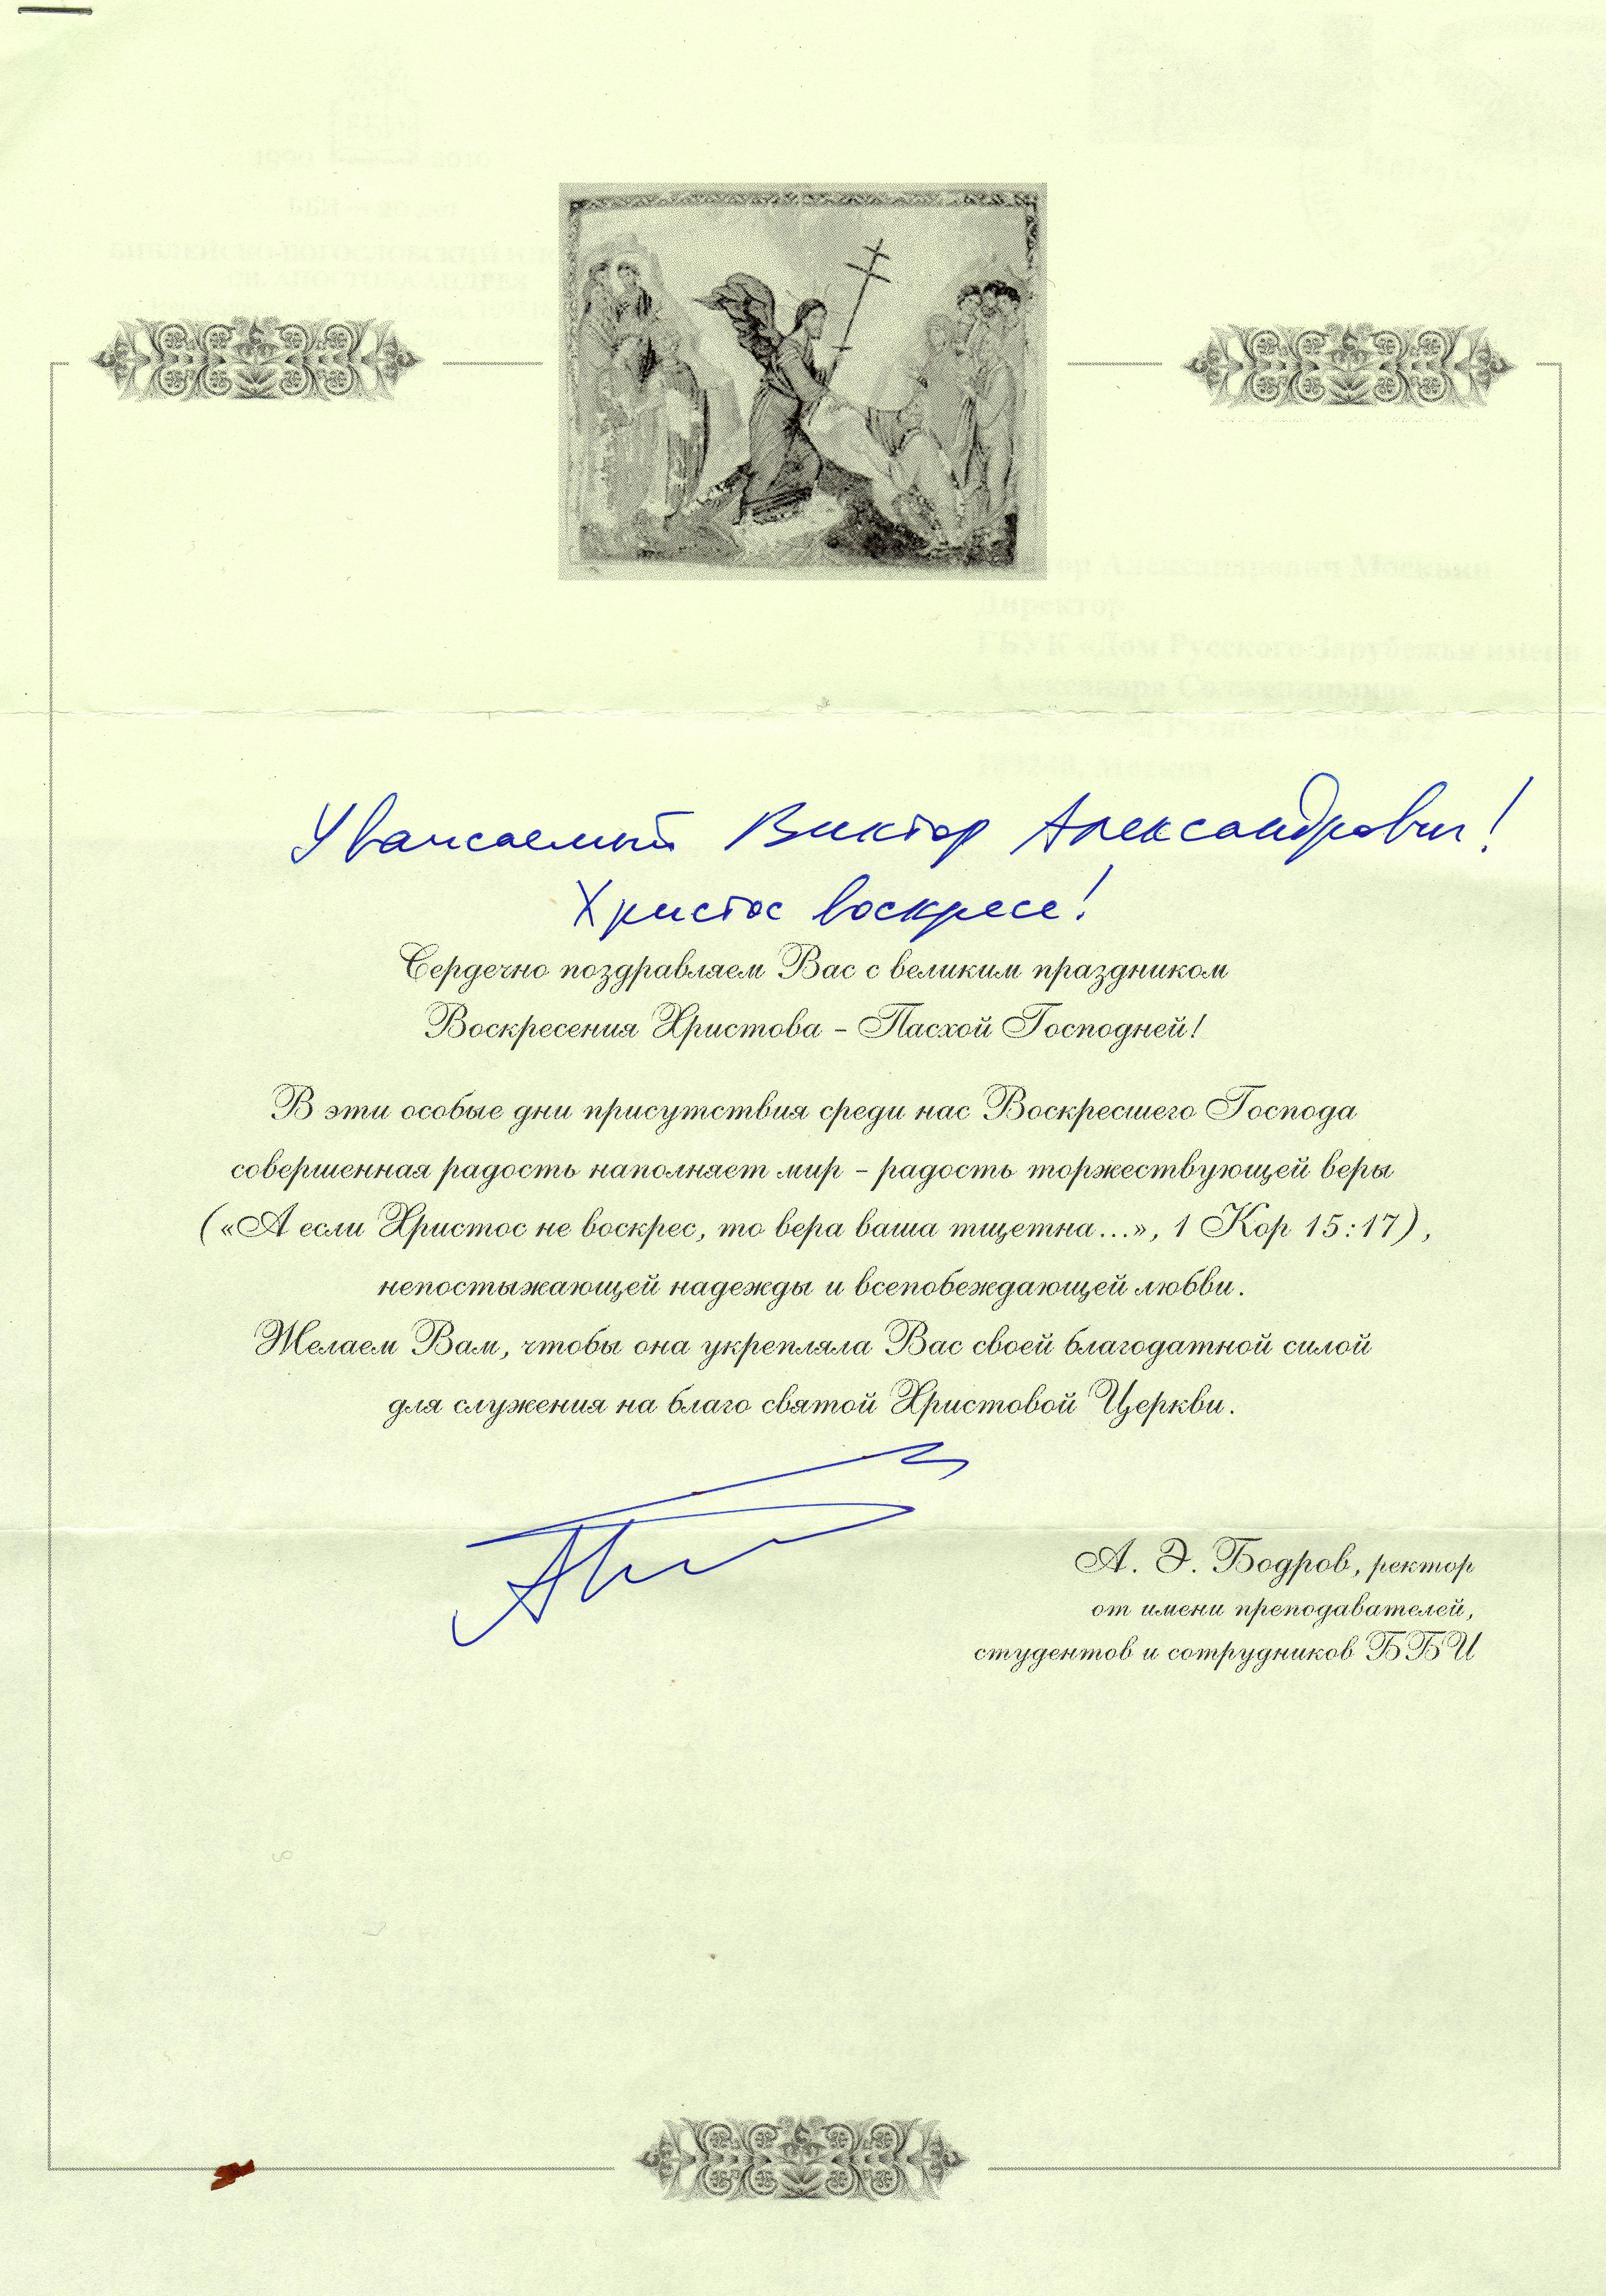 Уважаемый Виктор Александрович!
Христос воскресе!
Сердечно поздравляем Вас с великим праздником
Воскресения Христова – Пасхой Господней!
В эти особые дни присутствия среди нас Воскресшего Господа
совершенная радость наполняет мир – радость торжествующей веры
(«А если Христос не воскрес, то вера ваша тщетна...», 1 Кор 15:17),
непостыжающей надежды и всепобеждающей любви.
Желаем Вам, чтобы она укрепляла Вас своей благодатной силой
для служения на благо святой Христовой Церкви.
А. Э. Бодров, ректор
от имени преподавателей,
студентов и сотрудников ББИ